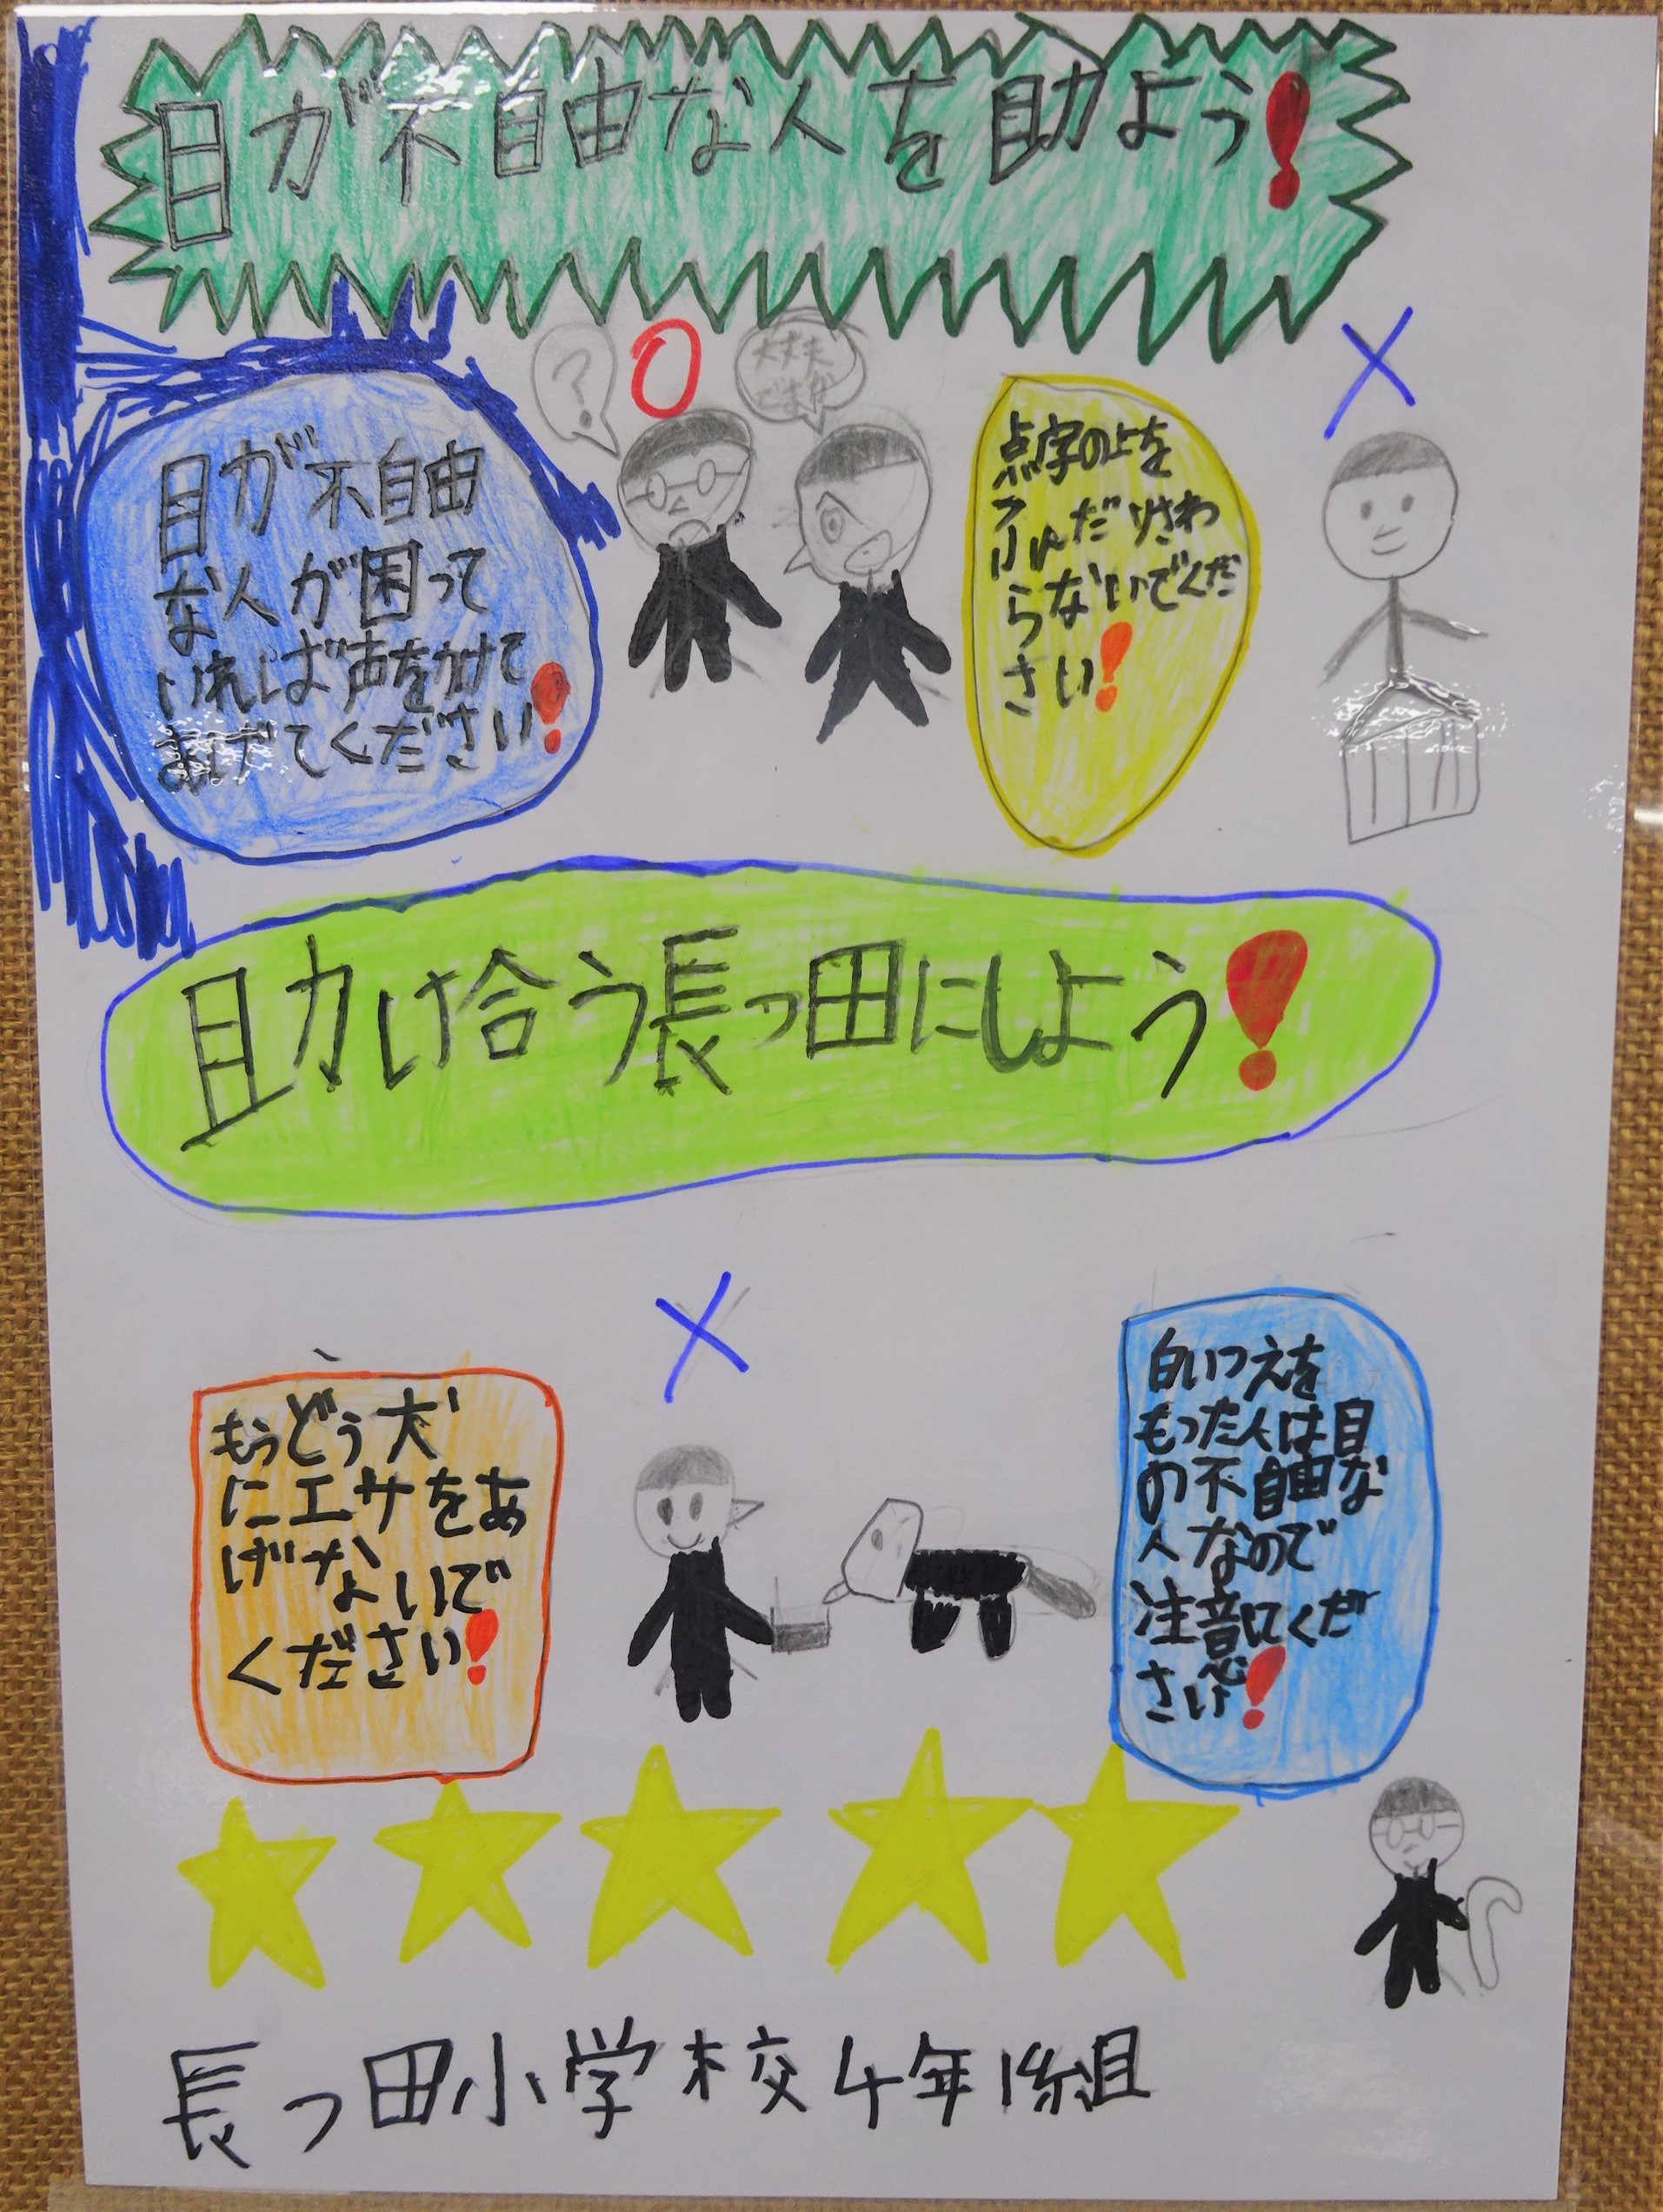 目が不自由な人を助よう！
？
大丈夫
ですか
目が不自由
な人が困って
いればば声をかけて
あげてください！
点字の上を
ふんだりさわ
らないでくだ
さい！
助け合う長つ田にしよう！
もうどう犬
にエサをあ
げないで
ください！
白いつえを
もった人は目
の不自由な
人なので
注意してくだ
さい！
長つ田小学校4年1組